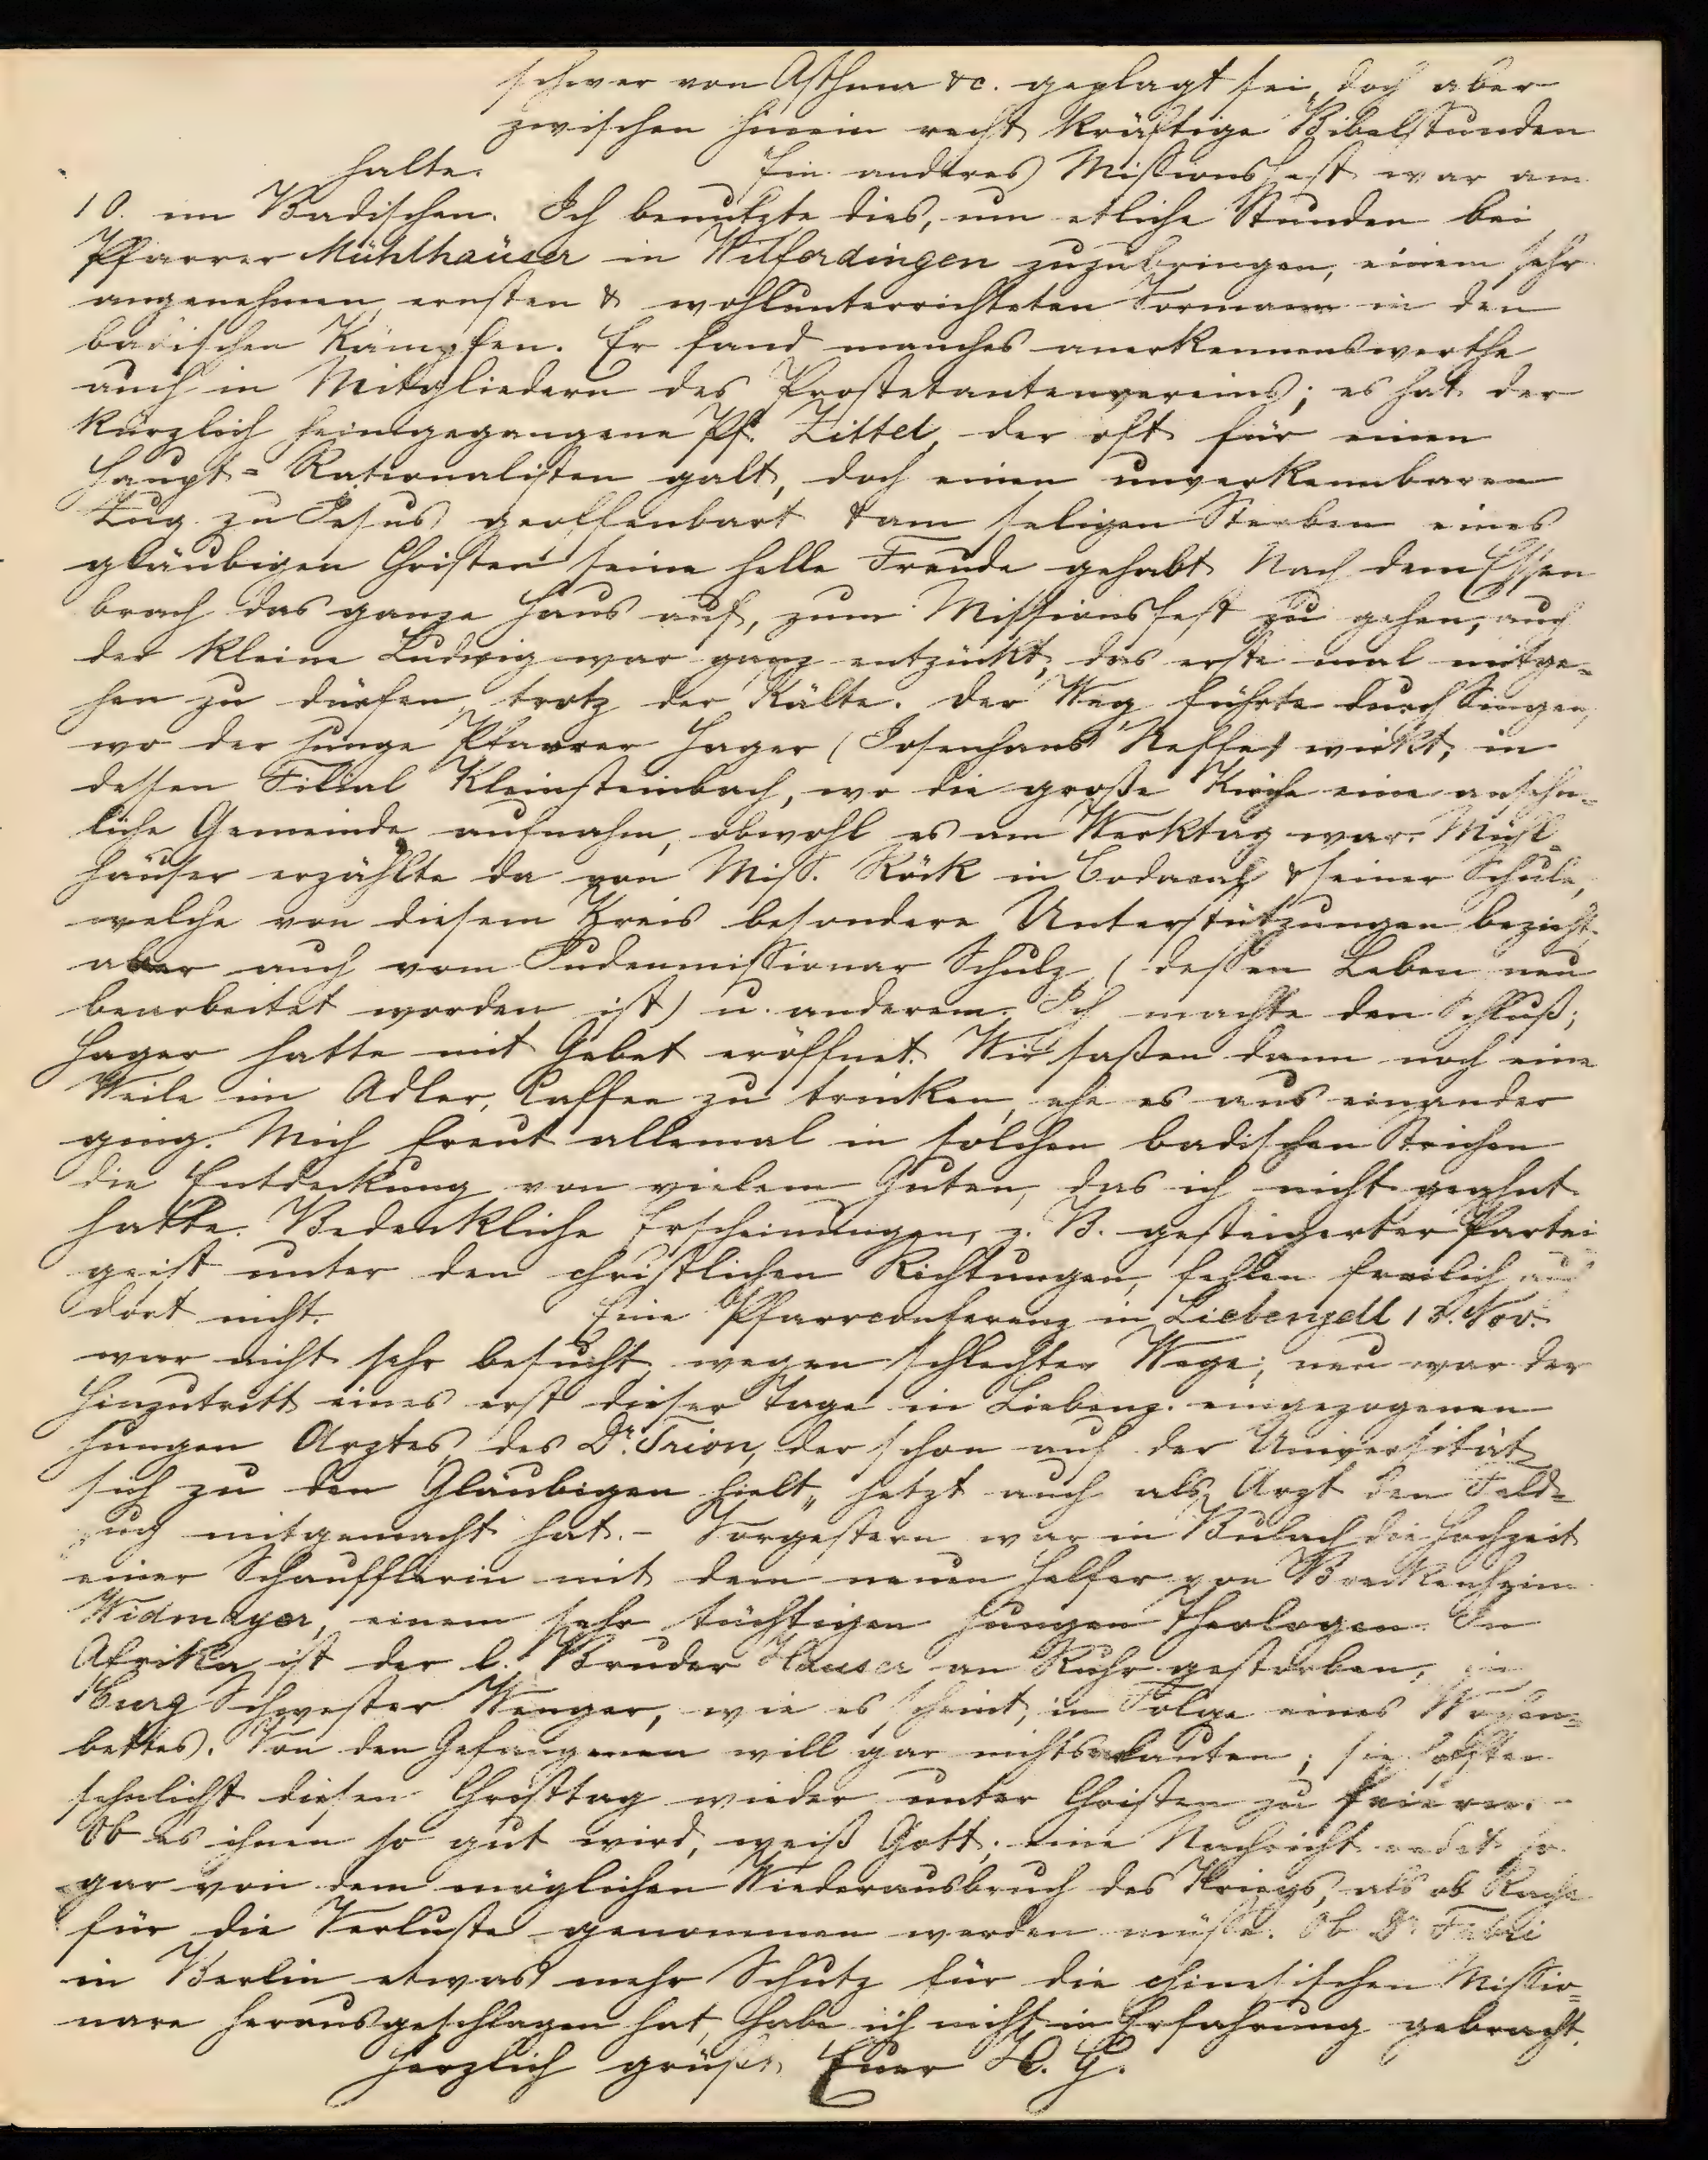 schwer von Asthma &c. geplagt sei, doch aber
zwischen hinein recht kräftige Bibelstunden
halte. Ein anderes Missionsfest war am
10. im Badischen. Ich benutzte dies, um etliche Stunden bei
Pfarrer Mühlhäuser in Wilferdingen zuzubringen, einem sehr
angenehmen, ernsten & wohlunterrichteten Vormann in den
badischen Kämpfen. Er fand manches anerkennenswerthe
auch in Mitgliedern des Prostetantenvereins; es hat der
kürzlich heimgegangene Pf. Zittel, der oft für einen
Haupt-Rationalisten galt, doch einen unverkennbaren
Zug zu Jesus geoffenbart & am seligen Sterben eines
gläubigen Christen seine helle Freude gehabt. Nach dem Essen
brach das ganze Haus auf, zum Missionsfest zu gehen, auch
der kleine Ludwig war ganz entzückt, das erste mal mitge-
hen zu dürfen, trotz der Kälte. Der Weg führte durch Singen,
wo der junge Pfarrer Hager (Josenhans' Neffe) wirkt, in
dessen Filial Kleinsteinbach, wo die große Kirche eine ansehn-
liche Gemeinde aufnahm, obwohl es am Werktag war. Mühl-
häuser erzählte da von Miss. Röck in Codacal & seiner Schule,
welche von diesem Kreis besondere Unterstützungen bezieht,
aber auch vom Judenmissionar Schulz (dessen Leben neu
bearbeitet worden ist) u. anderem. Ich machte den Schluß;
Hager hatte mit Gebet eröffnet. Wir saßen dann noch eine
Weile im Adler, Caffee zu trinken, ehe es aus einander
ging. Mich freut allemal in solchen badischen Strichen
die Entdeckung von vielem Guten, das ich nicht geahnt
hatte. Bedenkliche Erscheinungen, z. B. gesteigerter Partei
geist unter den christlichen Richtungen, fehlen freilich auch
dort nicht. Eine Pfarrconferenz in Liebenzell 13. Nov.
war nicht sehr besucht wegen schlechter Wege; neu war der
Hinzutritt eines erst dieser Tage in Liebenz. eingezogenen
jungen Arztes, des Dr. Trion, der schon auf der Universität
sich zu den Gläubigen hielt, jetzt auch als Arzt den Feld-
zug mitgemacht hat. - Vorgestern war in Bulach die Hochzeit
einer Schaufflerin mit dem neuen Helfer von Brackenheim
Widmayer, einem sehr tüchtigen jungen Theologen. In
Afrika ist der l. Bruder Hauser an Ruhr gestorben, in
Curg Schwester Wenger, wie es scheint, in Folge eines Wochen-
bettes. Von den Gefangenen will gar nichts verlauten; sie hofften
sehnlichst diesen Christtag wieder unter Christen zu feiern. -
Ob es ihnen so gut wird, weiß Gott; eine Nachricht redet so
gar von dem möglichen Wiederausbruch des Kriegs, als ob Rache
für die Verluste genommen werden müsse. Ob Dr. Fabri
in Berlin etwas mehr Schutz für die chinesischen Missio-
nare herausgeschlagen hat, habe ich nicht in Erfahrung gebracht.
Herzlich grüßt Euer H. G.